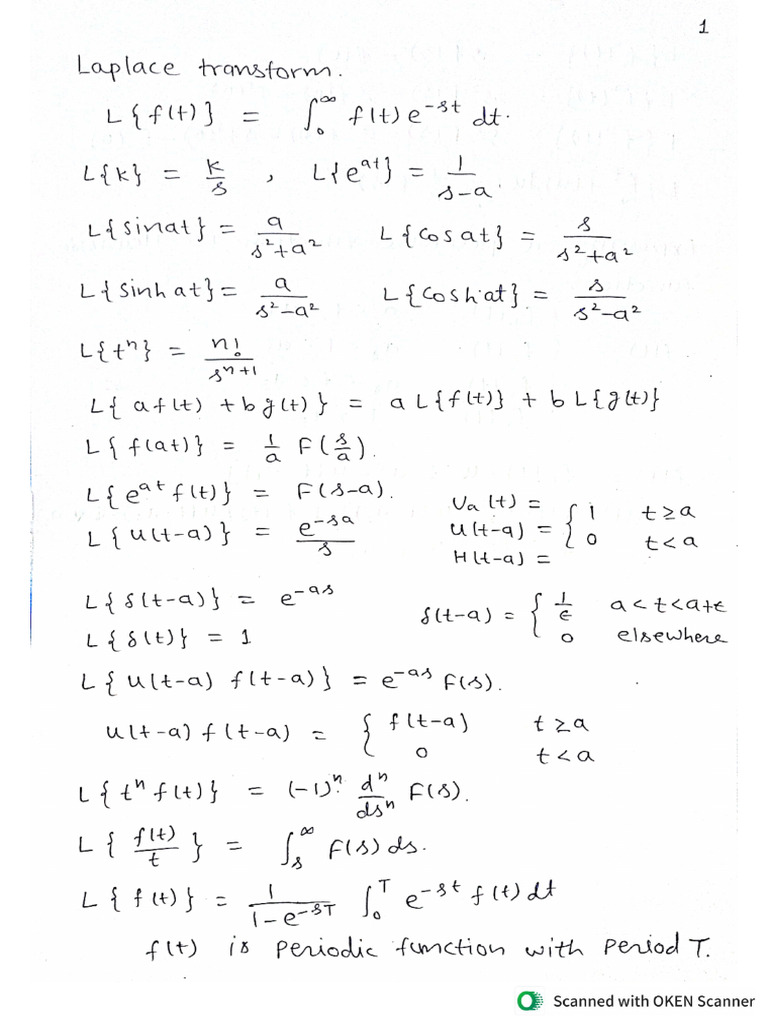 1
Laplace transform.
L{f(t)} = ∫₀^∞ f(t) e^{-st} dt.
L{k} = k/s , L{e^{at}} = 1/(s-a)
L{sin at} = a/(s²+a²) L{cos at} = s/(s²+a²)
L{sinh at} = a/(s²-a²) L{cosh at} = s/(s²-a²)
L{tⁿ} = n!/s^{n+1}
L{ af(t) + bg(t) } = a L{f(t)} + b L{g(t)}
L{ f(at)} = 1/a F(s/a).
L{e^{at} f(t)} = F(s-a).
L{ u(t-a) } = e^{-sa}/s
U_a(t) =
u(t-a) = { 1 t≥a
H(t-a) = 0 t<a
L{δ(t-a)} = e^{-as}
L{δ(t)} = 1
δ(t-a) = { 1/ε a<t<a+ε
0 elsewhere
L{ u(t-a) f(t-a)} = e^{-as} F(s).
u(t-a) f(t-a) = { f(t-a) t≥a
0 t<a
L{ tⁿ f(t)} = (-1)ⁿ dⁿ/dsⁿ F(s).
L{ f(t)/t } = ∫ₛ^∞ F(s) ds.
L{ f(t)} = 1/(1-e^{-sT}) ∫₀^T e^{-st} f(t) dt
f(t) is periodic function with period T.
Scanned with OKEN Scanner